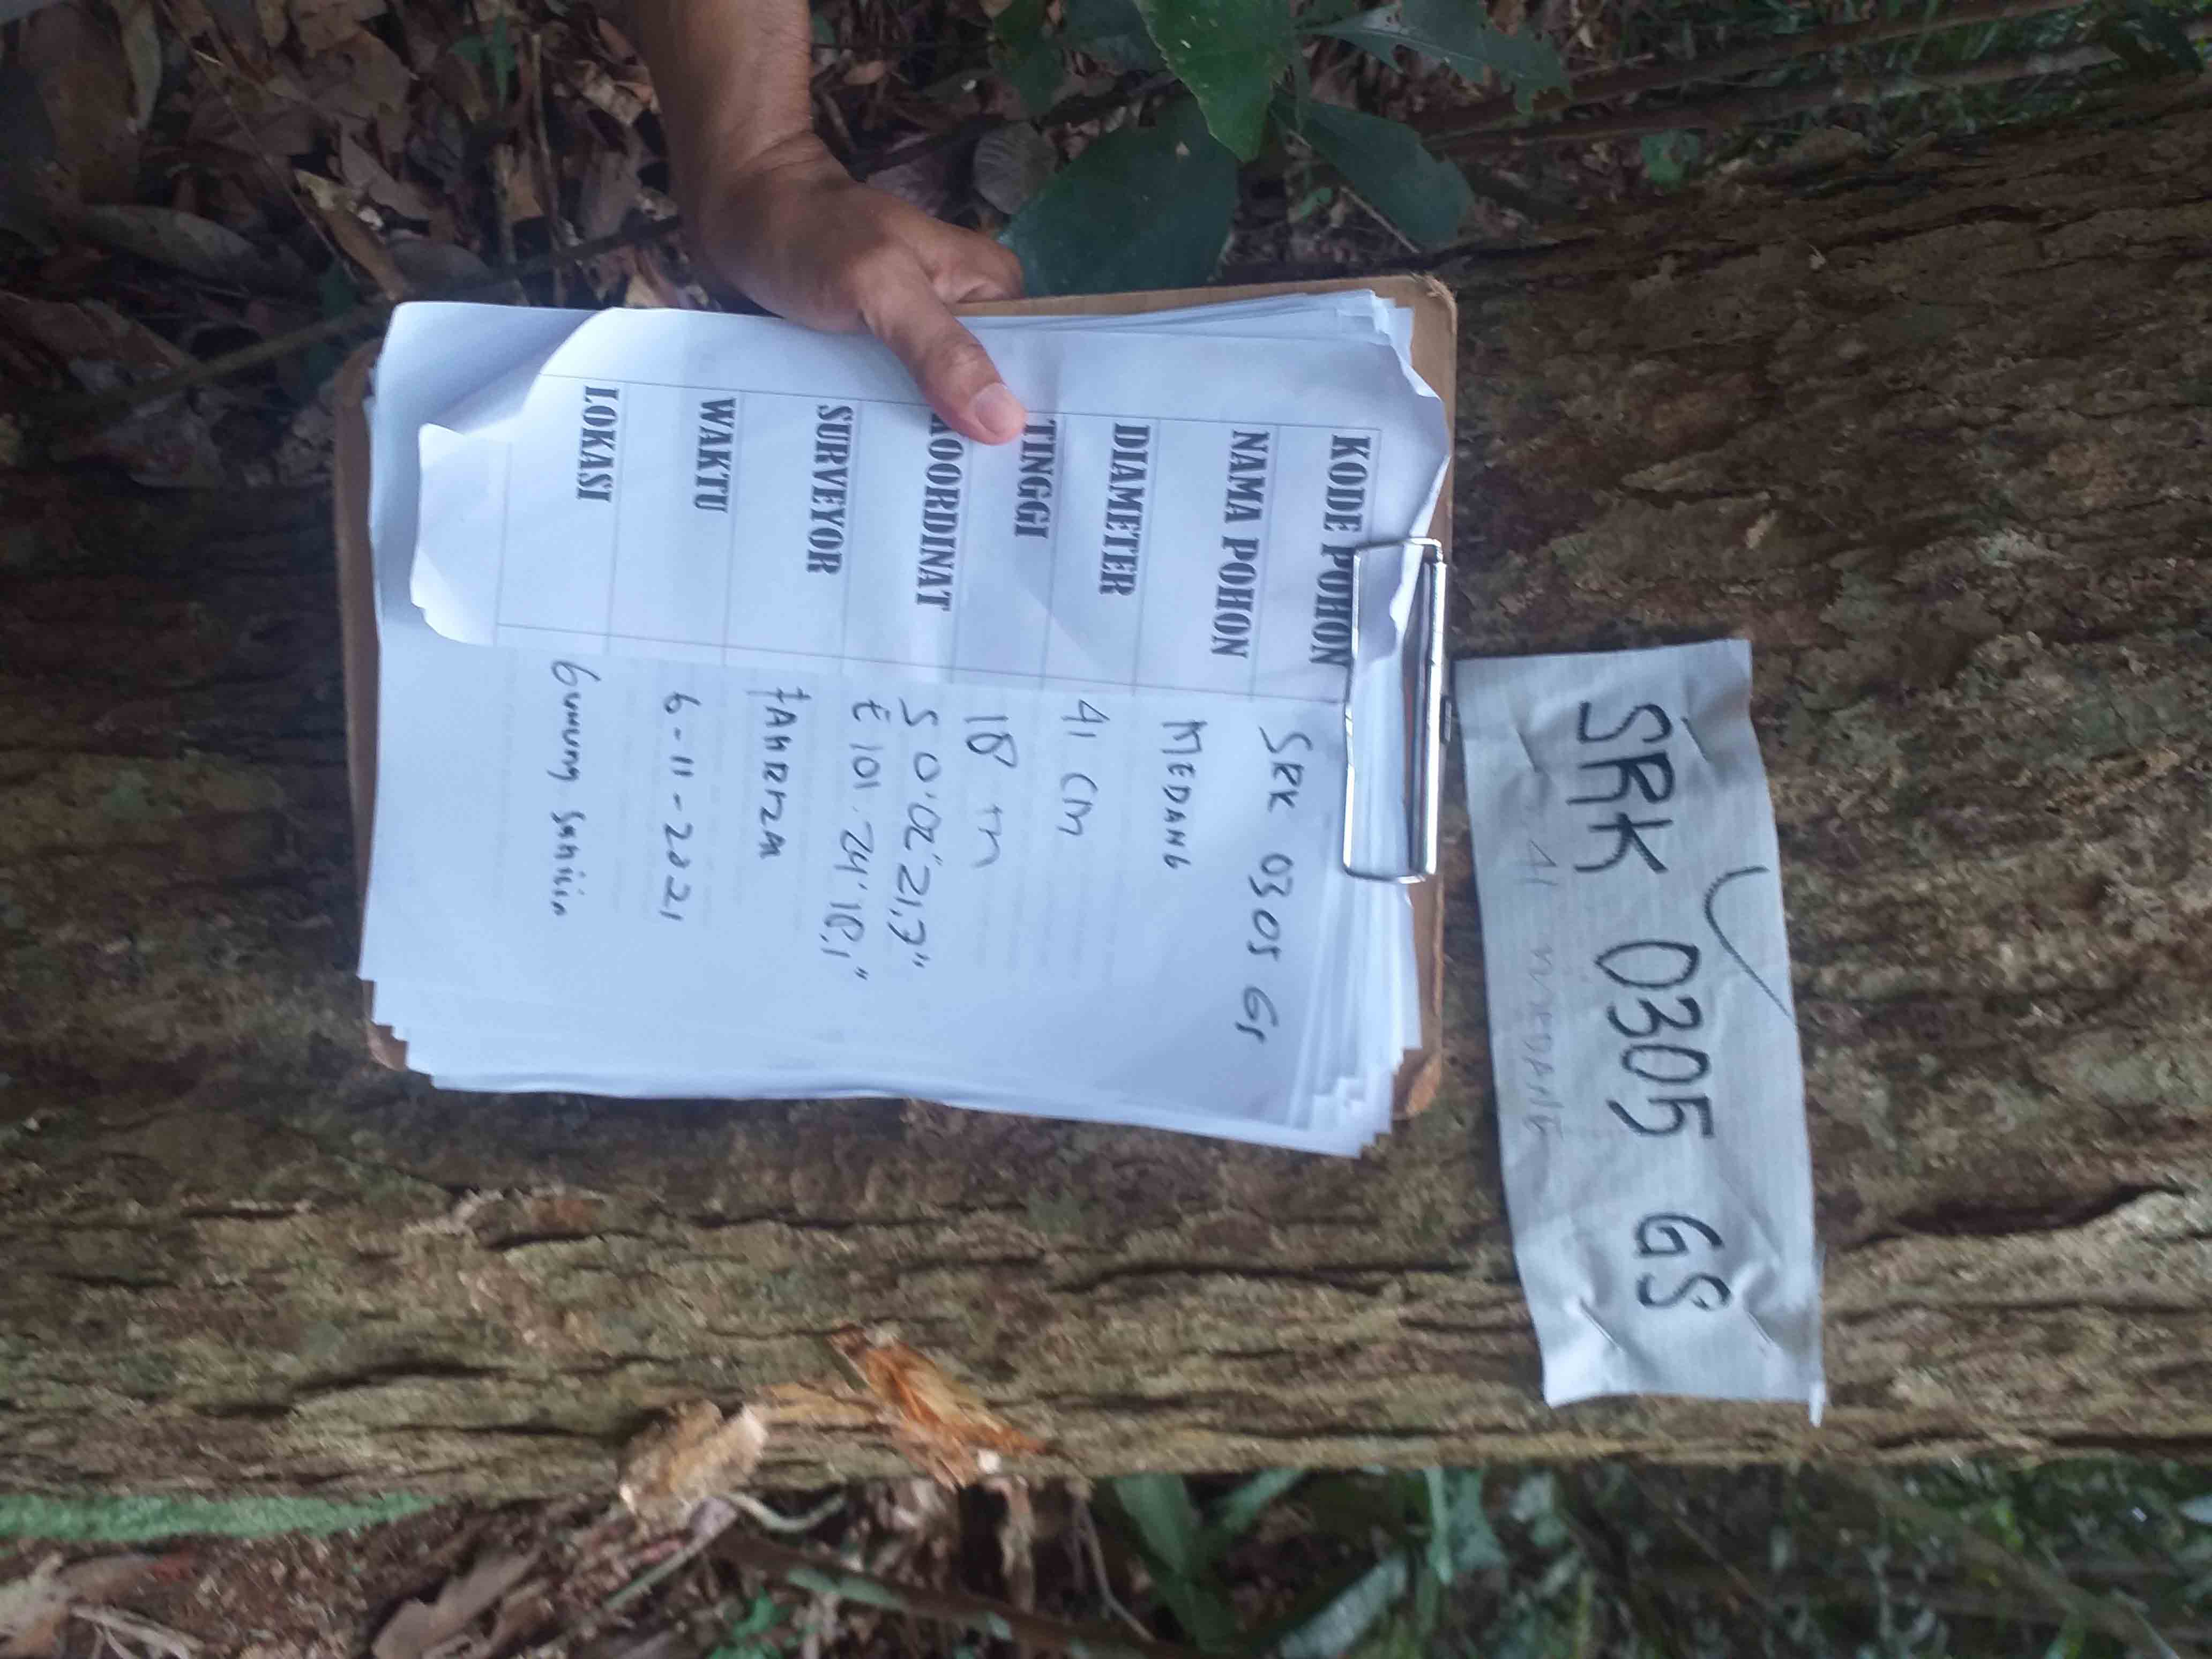 SRK 0305 GS
41 MEDANG
KODE POHON
SRK 0305 GS
NAMA POHON
MEDANG
DIAMETER
41 cm
TINGGI
18 m
KOORDINAT
S 0'02"21,7"
E 101.24'18,1"
SURVEYOR
WAKTU
6-11-2021
LOKASI
Gunung